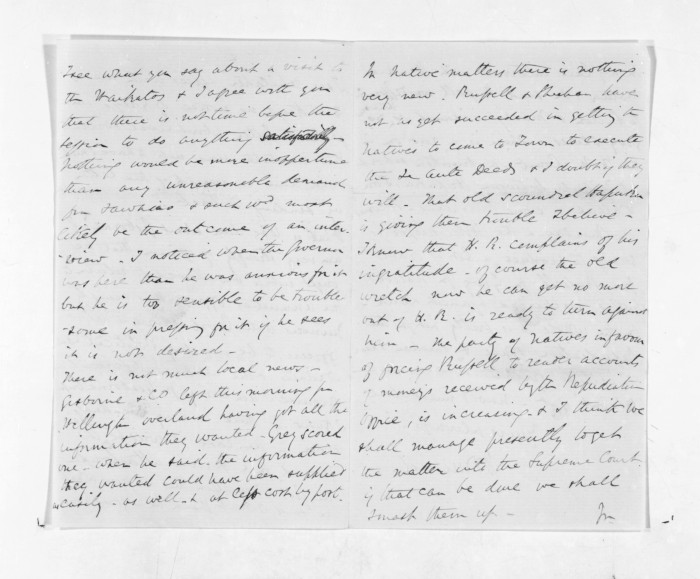 I see what you say about a visit to
the Waikatos & I agree with you
that there is not time before the
session to do anything satisfactorily
Nothing would be more inopportune
than any unreasonable demand
from Tawhiao & such wd. most
likely be the outcome of an inter-
view - I noticed when the Governor
was here that he was anxious for it
but he is too sensible to be trouble
-some in pressing for it if he sees
it is not desired -
There is not much local news -
Gisborne & Co left this morning for
Wellington overland having got all the
information they wanted - Grey scored
one - when he said the information
they wanted could have been supplied
as easily - as well - & at less cost by post.
In Native matters there is nothing
very new. Russell & Sheehan have
not as yet succeeded in getting the
Natives to come to Town to execute
the Te Aute Deeds & I doubt if they
will - That old scoundrel
is giving them trouble I believe -
I know that H. R. complains of his
ingratitude - of course the old
wretch now he can get no more
out of H. R. is ready to turn against
him - The party of Natives in favour
of forcing Russell to render accounts
of moneys received by the Repudiation
Office, is increasing - & I think we
shall manage presently to get
the matter into the Supreme Court.
if that can be done we shall
smash them up -